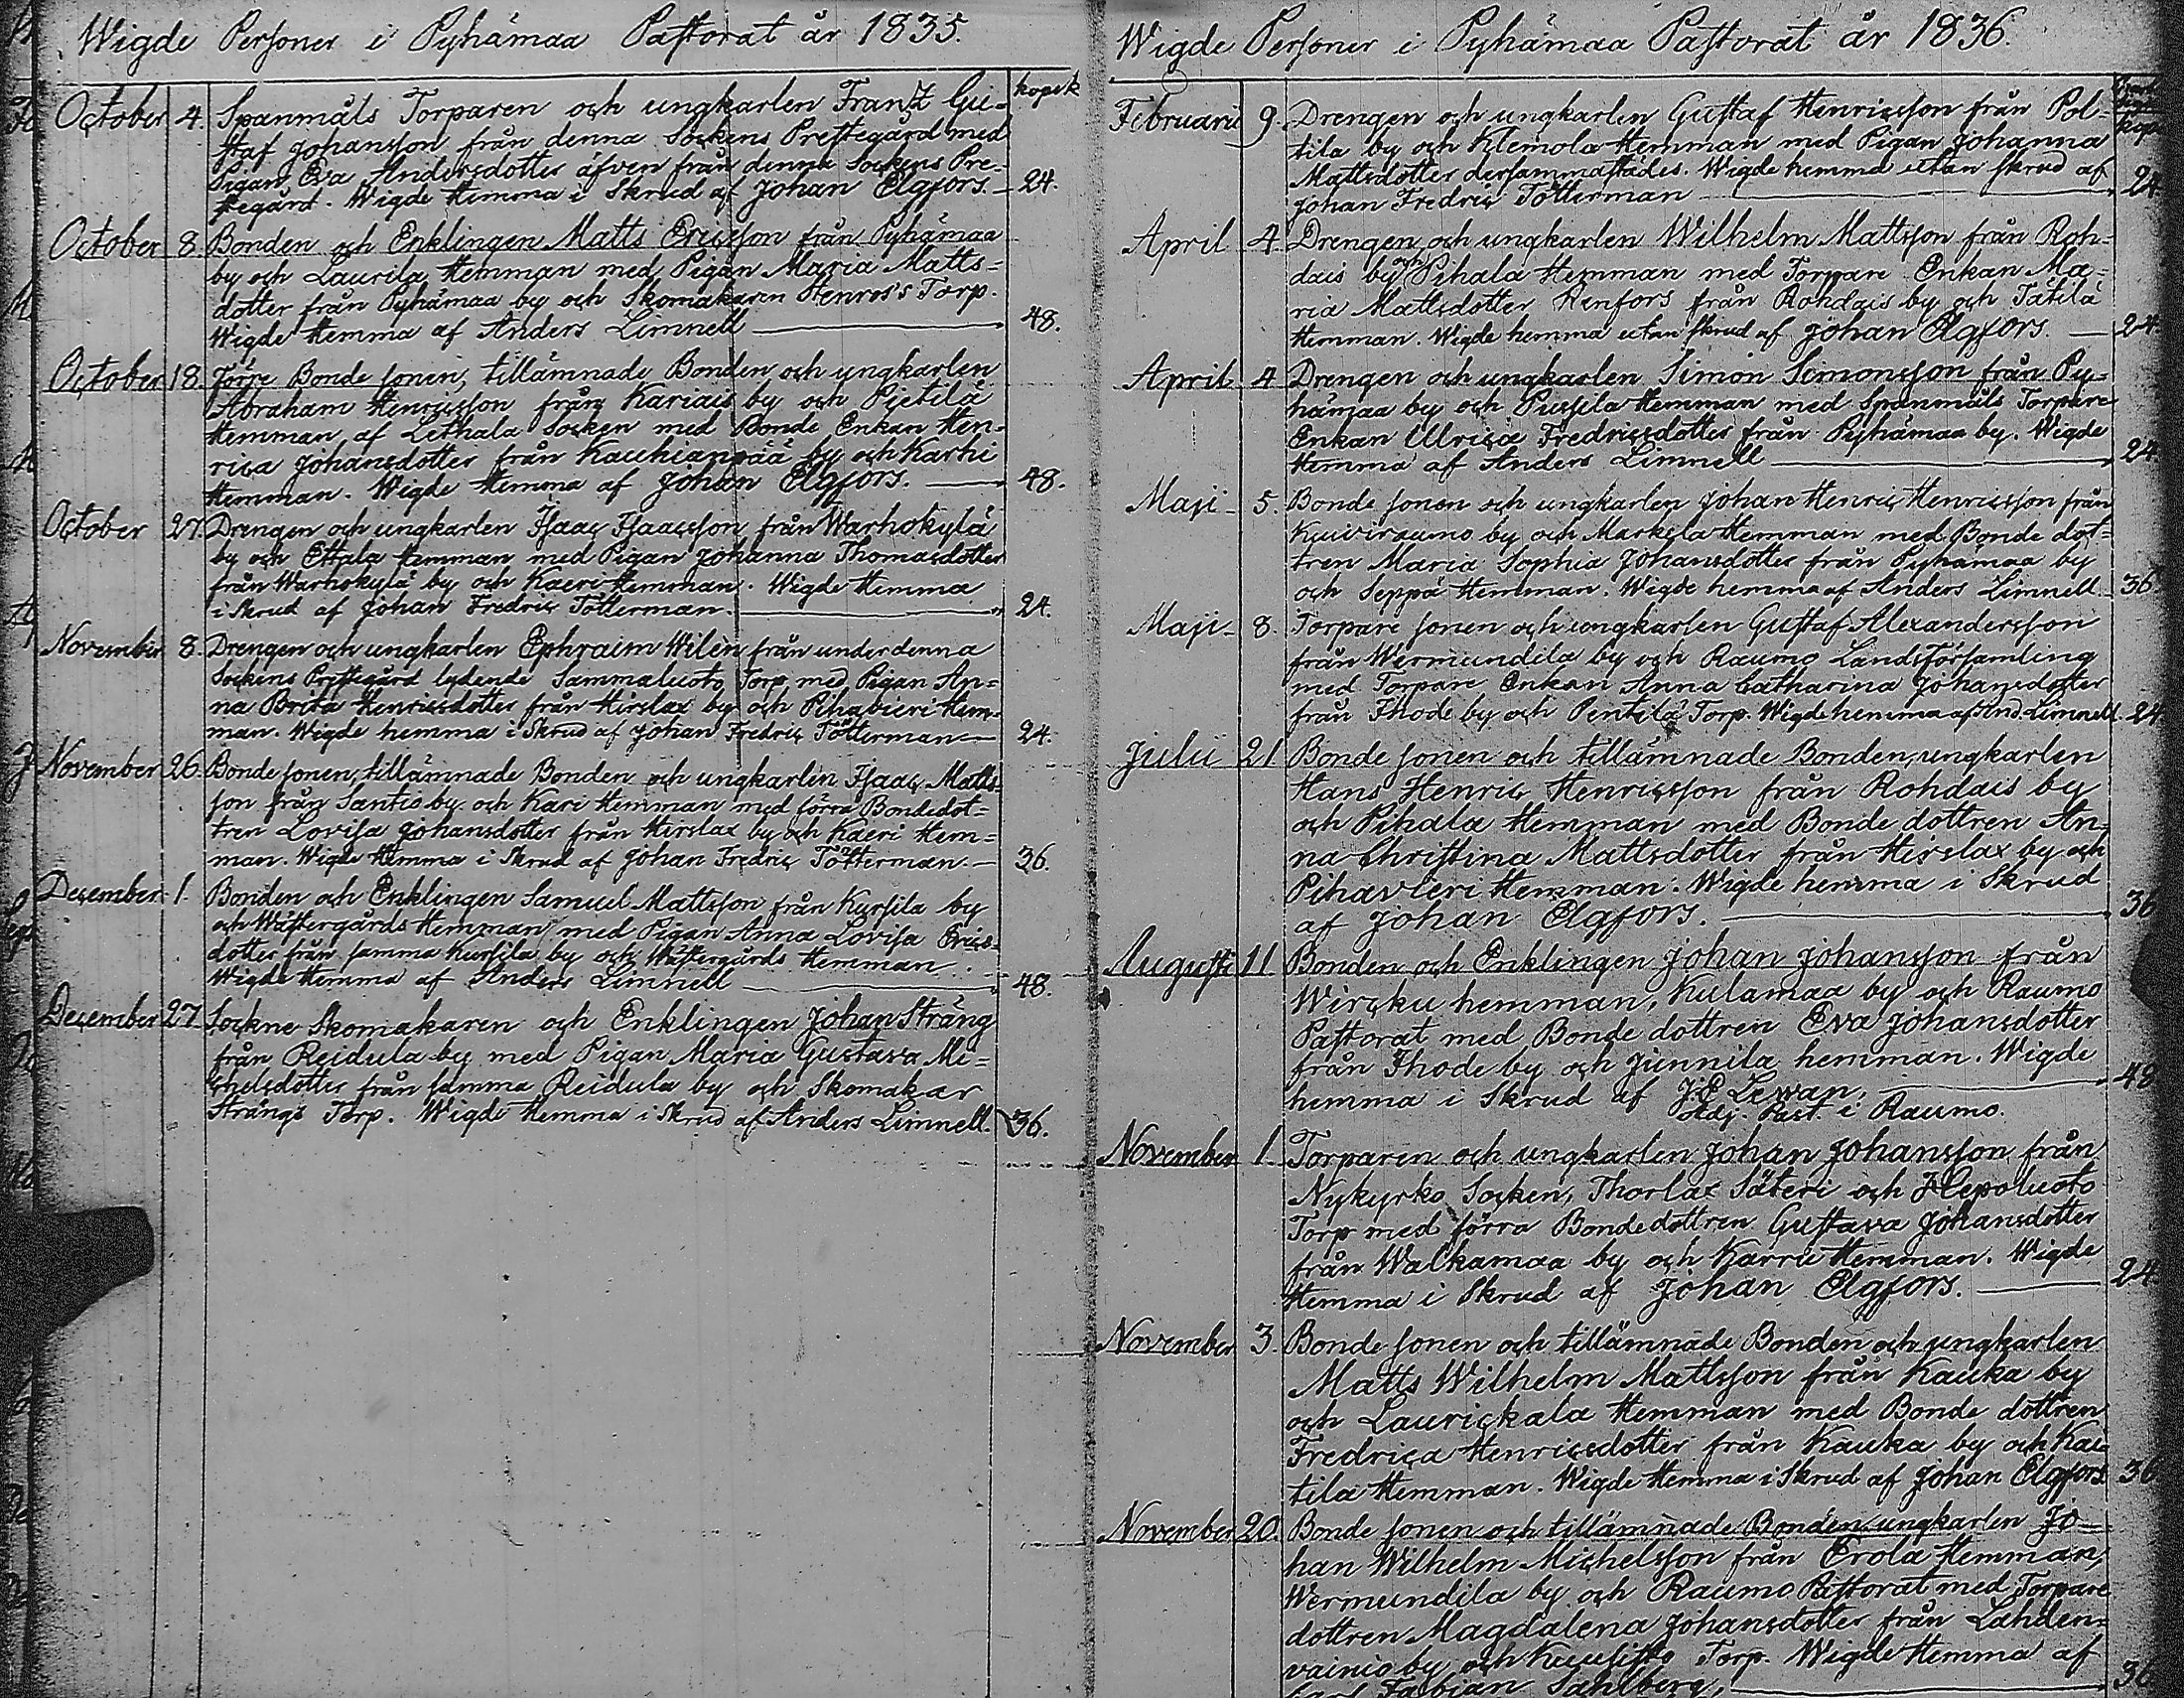 Wigde Personer i Pyhämaa Pastorat år 1835.
kopek
October 4. Spanmåls Torparen och ungkarlen Frantz Gu-
staf Johansson från denna Sockens Prestegård med
Pigan Eva Andersdotter äfven från denna Sockens Pre-
stegård. Wigde Hemma i Skrud af Johan Elgfors. 24.
October 8. Bonden och Enklingen Matts Ericsson från Pyhämaa
by och Laurila Hemman med Pigan Maria Matts=
dotter från Pyhämaa by och Skomakaren Henros's Torp.
Wigde Hemma af Anders Limnell 48.
October 18. Förre Bonde sonen, tillämnade Bonden och ungkarlen
Abraham Henricsson från Kariais by och Pietilä
Hemman af Lethala Socken med Bonde Enkan Hen-
rica Johansdotter från Kauhianpää by och Karhi
Hemman. Wigde Hemma af Johan Elgfors. 48.
October 27. Drengen och ungkarlen Isaac Isaacsson från Warhokylä
by och Ettala Hemman med Pigan Johanna Thomasdotter
från Warhokylä by och Kaeri Hemman. Wigde Hemma
i Skrud af Johan Fredric Tötterman. 24.
November 8. Drengen och ungkarlen Ephraim Wilèn från under denna
Sockens Prestegård lydende Sammaluoto Torp med Pigan An=
na Brita Henricsdotter från Hirslax by och Pihavieri Hem-
man. Wigde hemma i Skrud af Johan Fredric Tötterman 24.
November 26. Bonde sonen, tillämnade Bonden och ungkarlen Isaac Matts-
son från Santio by och Kari Hemman med förra Bondedot=
tren Lovisa Johansdotter från Hirslax by och Kaeri Hem=
man. Wigde Hemma i Skrud af Johan Fredric Tötterman. 36.
December 1. Bonden och Enklingen Samuel Mattsson från Kursila by
och Wästergårds Hemman med Pigan Anna Lovisa Erics-
dotter från samma Kursila by och Wästergårds Hemman.
Wigde Hemma af Anders Limnell 48.
December 27. Sockne Skomakaren och Enklingen Johan Sträng
från Reidula by med Pigan Maria Gustava Mi=
chelsdotter från samma Reidula by och Skomakar
Strängs Torp. Wigde Hemma i Skrud af Anders Limnell. 36.
Wigde Personer i Pyhämaa Pastorat år 1836.
Februarii 9. Drengen och ungkarlen Gustaf Henricsson från Pol-
tila by och Klemola Hemman med Pigan Johanna
Mattsdotter dersammastädes. Wigde hemma utan skrud af
Johan Fredric Tötterman 24
April 4. Drengen och ungkarlen Wilhelm Mattsson från Roh-
dais by och Pihala Hemman med Torpare Enkan Ma-
ria Mattsdotter Renfors från Rohdais by och Tätilä
Hemman. Wigde hemma utan skrud af Johan Elgfors. 24.
April 4 Drengen och ungkarlen Simon Simonsson från Py-
hämaa by och Pussila Hemman med Spanmåls Torpare
Enkan Ulrica Fredricsdotter från Pyhämaa by. Wigde
Hemma af Anders Limnell 24
Maji 5. Bonde sonen och ungkarlen Johan Henric Henricsson från
Kuiviraumo by och Markela Hemman med Bonde dot-
tren Maria Sophia Johansdotter från Pyhämaa by
och Seppä Hemman. Wigde hemma af Anders Limnell. 36
Maji 8. Torpare sonen och ungkarlen Gustaf Alexandersson
från Wermundila by och Raumo Landsförsamling
med Torpare Enkan Anna Catharina Johansdotter
från Ihode by och Pentilä Torp. Wigde hemma af And. Limnell. 24
Julii 21 Bonde sonen och tillämnade Bonden, ungkarlen
Hans Henric Henricsson från Rohdais by
och Pihala Hemman med Bonde dottren An-
na Christina Mattsdotter från Hirslax by och
Pihavieri Hemman. Wigde hemma i Skrud
af Johan Elgfors. 36
Augusti 11 Bonden och Enklingen Johan Johansson från
Wircku hemman, Kulamaa by och Raumo
Pastorat med Bonde dottren Eva Johansdotter
från Ihode by och Junnila hemman. Wigde
hemma i Skrud af J.E Lewan, 48
Adj. Past. i Raumo.
November 1. Torparen och ungkarlen Johan Johansson från
Nykyrko Socken, Thorlax Säteri och Hepoluoto
Torp med förra Bondedottren Gustava Johansdotter
från Walkamaa by och Karru Hemman. Wigde
Hemma i Skrud af Johan Elgfors. 24
November 3. Bonde sonen och tillämnade Bonden och ungkarlen
Matts Wilhelm Mattsson från Kauka by
och Laurickala Hemman med Bonde dottren
Fredrica Henricsdotter från Kauka by och Kau
tila Hemman. Wigde Hemma i Skrud af Johan Elgfors 36
November 20. Bonde sonen och tillämnade Bonden ungkarlen Jo-
han Wilhelm Michelsson från Erola Hemman,
Wermundila by och Raumo Pastorat med Torpare
dottren Magdalena Johansdotter från Lahden-
vainio by och Kuusisto Torp. Wigde Hemma af
Carl Fabian Sahlberg, 36